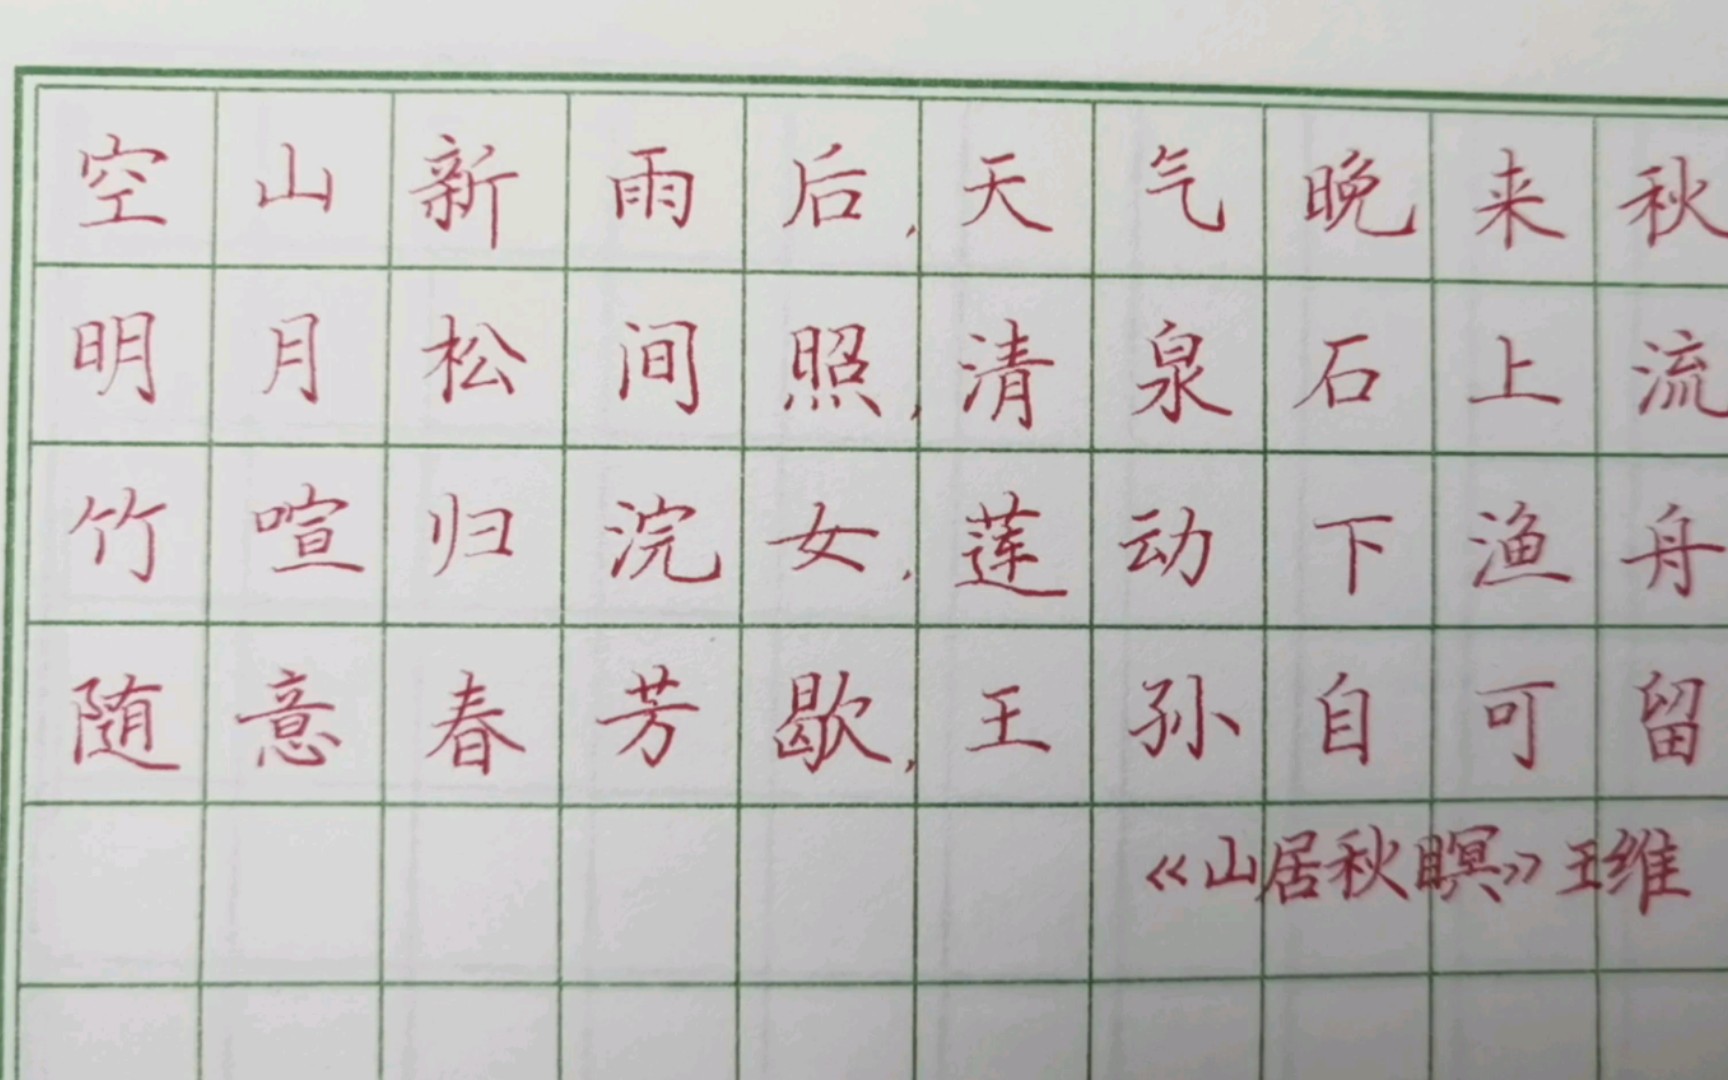 空山新雨后,天气晚来秋
明月松间照,清泉石上流
竹喧归浣女,莲动下渔舟
随意春芳歇,王孙自可留
《山居秋暝》王维